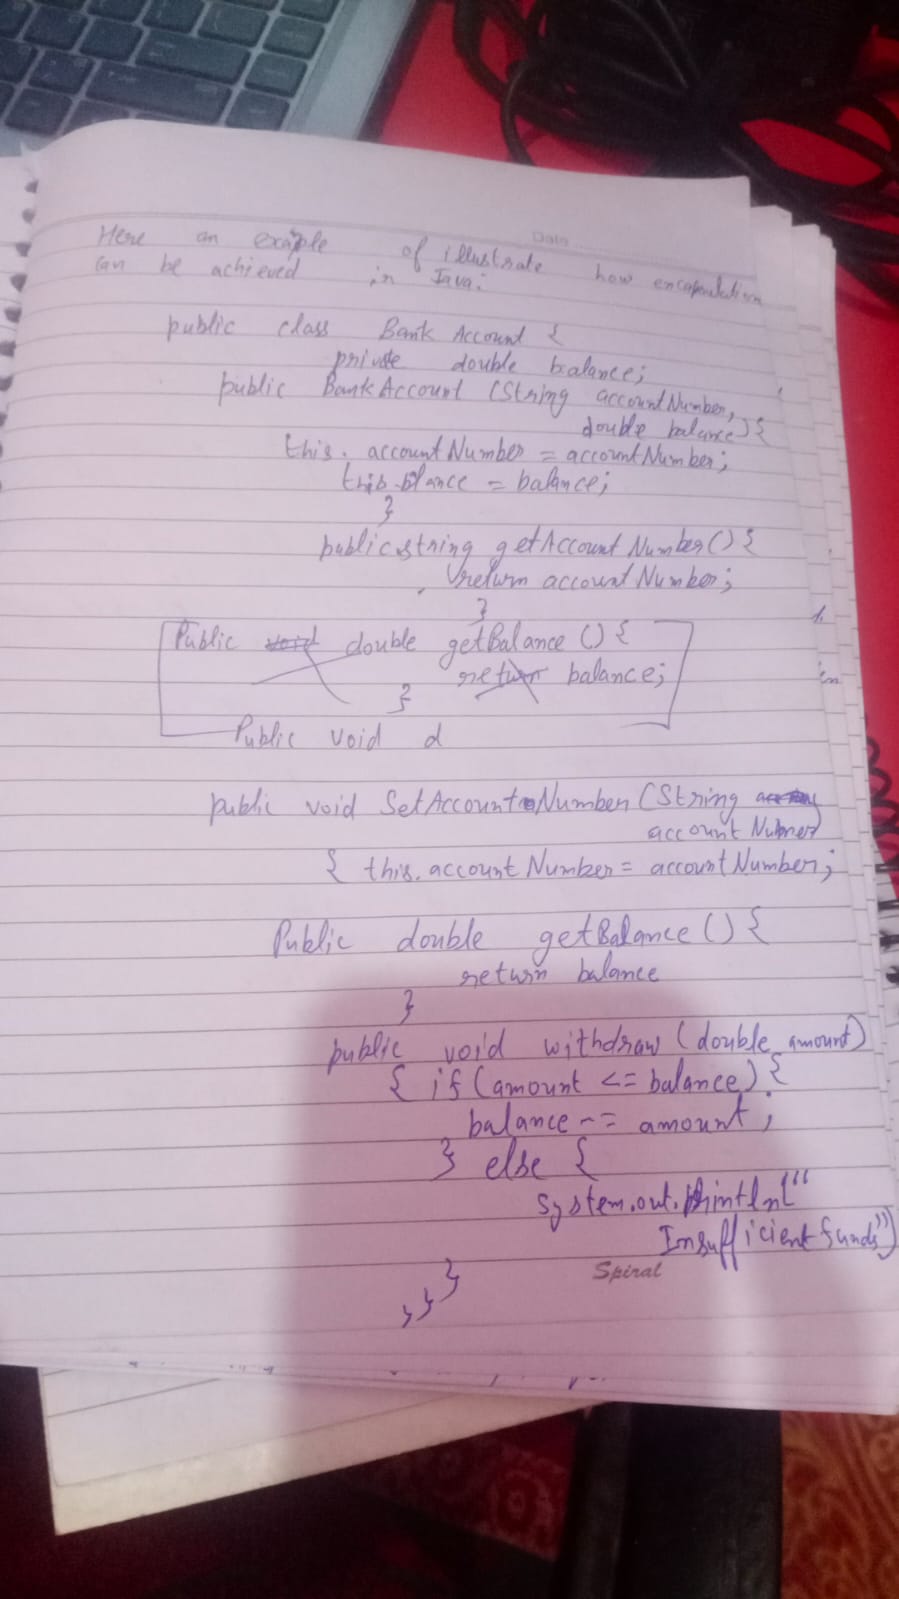 Date
Here an example of illustrate how encapsulation
can be achieved in Java:
public class Bank Account {
private double balance;
public BankAccount (String accountNumber,
double balance) {
this. accountNumber = accountNumber;
this.blance = balance;
}
public string getAccount Number() {
return account Number;
}
Public void double getBalance () {
return balance;
}
Public void d
public void SetAccount Number (String
account Nubmer)
{ this.account Number = account Number;
Public double getBalance () {
return balance
}
public void withdraw (double amount)
{ if (amount <= balance) {
balance -= amount ;
} else {
system.out.println("
Insufficient funds")
Spiral
}
}}